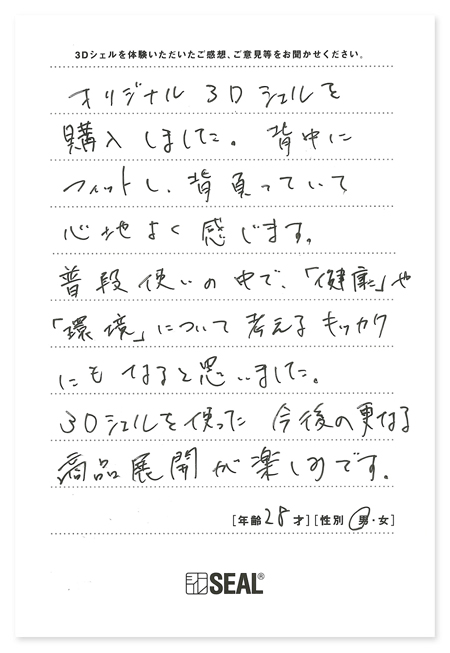 3Dシェルを体験いただいたご感想、ご意見等をお聞かせください。
オリジナル 3Dシェルを
購入しました。背中に
フィットし、背負っていて
心地よく感じます。
普段使いの中で、「健康」や
「環境」について考えるキッカケ
にもなると思いました。
3Dシェルを使った 今後の更なる
商品展開が楽しみです。
[年齢 28 才] [性別 男・女]
SEAL®